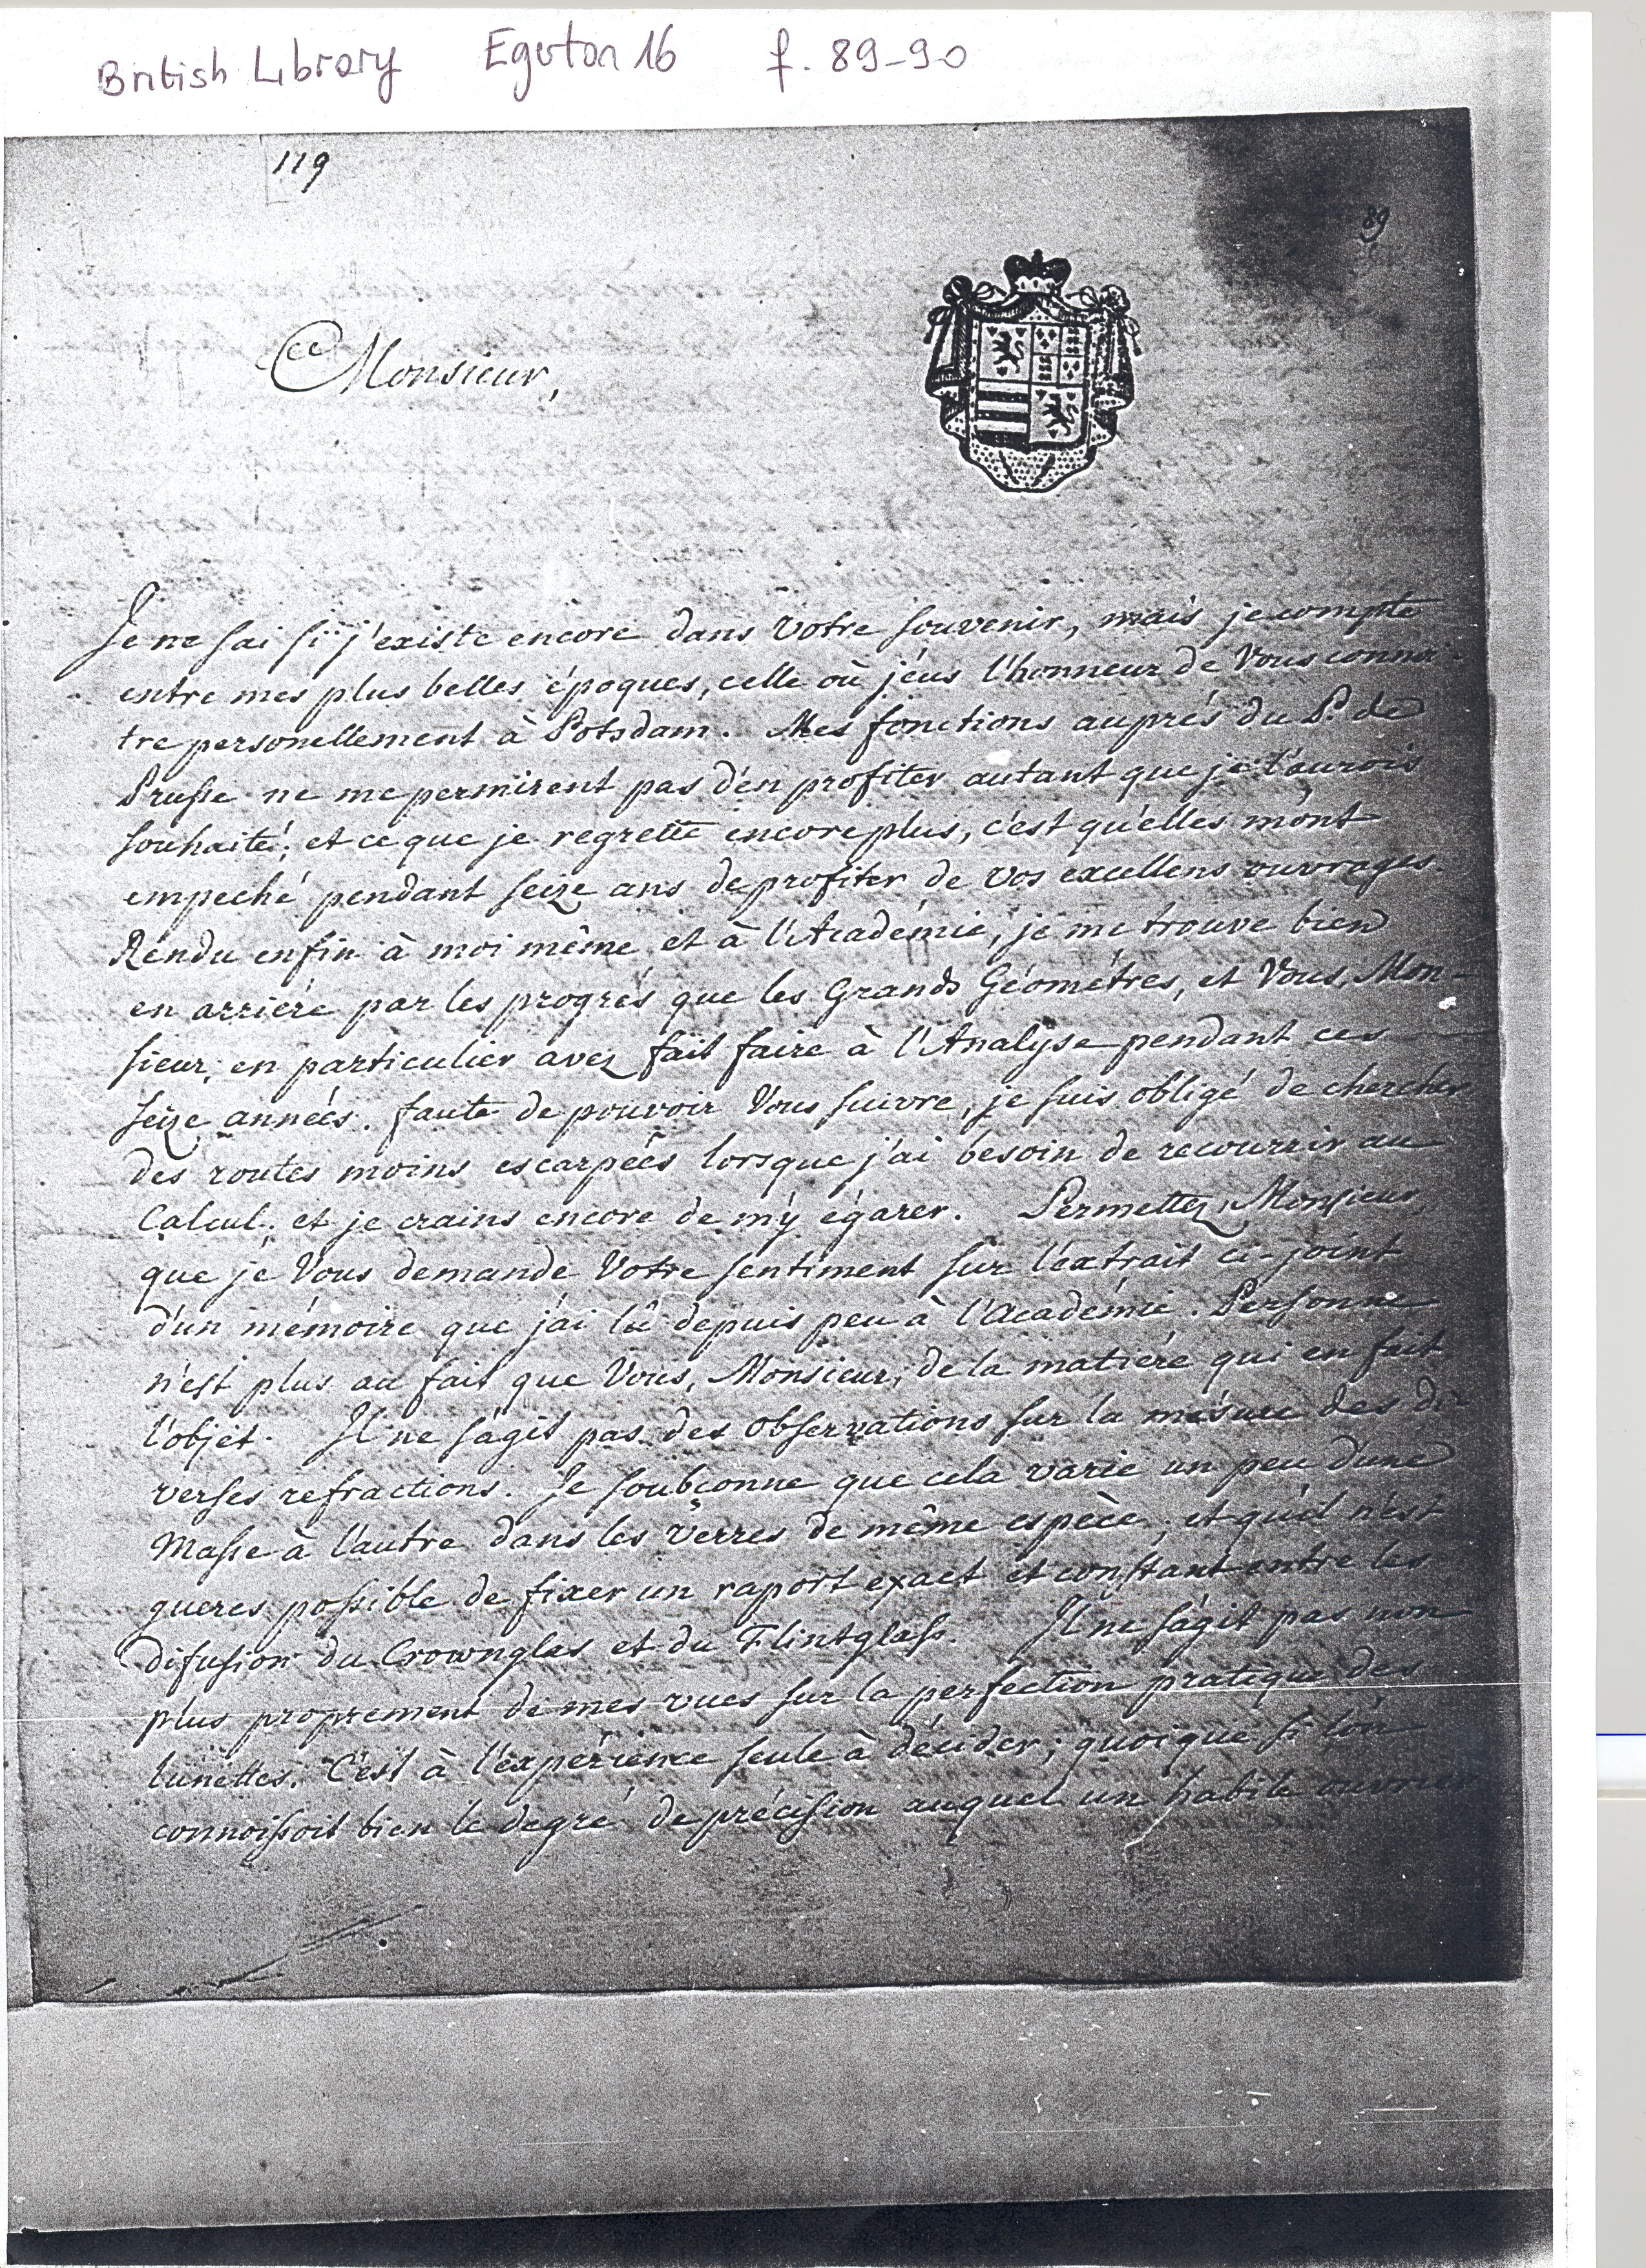 British Library Egerton 16 f. 89-90
119
89
Monsieur,
Je ne sai si j'existe encore dans Votre souvenir, mais je compte
entre mes plus belles époques, celle où j'eus l'honneur de Vous connoi-
tre personellement à Potsdam. Mes fonctions auprés du P. de
Prusse ne me permirent pas d'en profiter autant que je l'aurois
souhaité; et ce que je regrette encore plus, c'est qu'elles m'ont
empeché pendant seize ans de profiter de vos excellens ouvrages.
Rendu enfin à moi même et à l'Académie, je me trouve bien
en arriére par les progrés que les Grands Géométres, et Vous, Mon-
sieur, en particulier avez fait faire à l'Analyse pendant ces
seize années. faute de pouvoir Vous suivre, je suis obligé de chercher
des routes moins escarpées lorsque j'ai besoin de recourrir au
Calcul; et je crains encore de m'y égarer. Permettez, Monsieur,
que je Vous demande Votre sentiment sur l'extrait ci-joint
d'un mémoire que j'ai lû depuis peu à l'Académie. Personne
n'est plus au fait que Vous, Monsieur, de la matiére qui en fait
l'objet. Il ne s'agit pas des observations sur la mésure des di-
verses refractions. Je soubçonne que cela varie un peu d'une
Masse à l'autre dans les verres de même espèce; et qu'il n'est
gueres possible de fixer un raport exact et constant entre les
difusion du Crownglas et du Flintglass. Il ne s'agit pas non
plus proprement de mes vues sur la perfection pratique des
lunettes. C'est à l'expérience seule à décider; quoique si l'on
connoissoit bien le degré de précision auquel un habile ouvrier